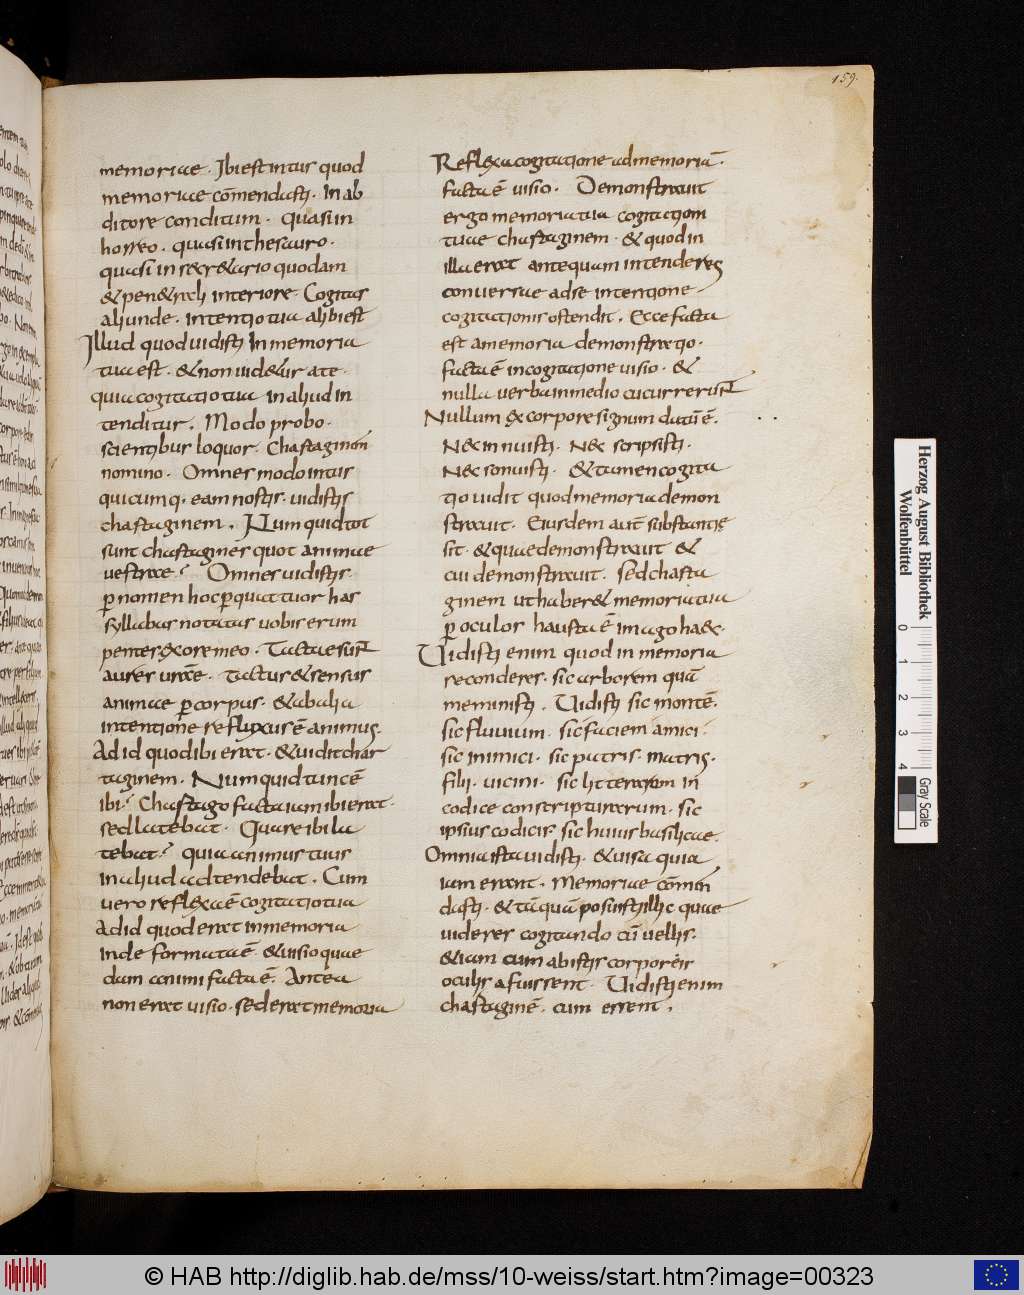 159.
memoriae. Ibi est intus quod
memoriae cōmendasti. In ab
ditore conditum. quasi in
horreo. quasi in thesauro.
quasi in secr&ario quodam
& pen&rali interiore. Cogitas
aliunde. intentio tua alibi est
Illud quod uidisti In memoria
tua est. & non uid&ur a te.
quia cogitatio tua in aliud in
tenditur. Modo probo.
scientibus loquor. Chastaginem
nomino. Omnes modo intus
quicumq. eam nostis. uidistis
chastaginem. Num quid tot
sunt chastagines quot animae
uestrae? Omnes uidistis.
p nomen hoc p quattuor has
syllabas notatas uobis erum
pentes ex ore meo. Tactae sunt
aures urae. tactus & sensus
animae p corpus. & ab alia
intentione reflexus ē animus.
Ad id quod ibi erat. & uidit chas
taginem. Numquid tunc ē
ibi? Chastago facta iam ibi erat.
sed latebat. Quare ibi la
tebat? quia animus tuus
in aliud adtendebat. Cum
uero reflexa ē cogitatio tua
Ad id quod erat in memoria
inde formata ē. & uisio quae
dam animi facta ē. Antea
non erat uisio. sed erat memoria
Reflexa cogitatione ad memoriā.
facta ē uisio. Demonstrauit
ergo memoria tua cogitationi
tuae chastaginem. & quod in
illa erat antequam intenderes
conuersae ad se intentione
cogitationis ostendit. Ecce facta
est a memoria demonstratio.
facta ē in cogitatione uisio. &
nulla uerba in medio cucurrerunt
Nullum ex corpore signum datū ē.
N& innuisti. N& scripsisti.
N& sonuisti. & tamen cogita
tio uidit quod memoria demon
strauit. Eiusdem aut substantię
sit. & quae demonstrauit &
cui demonstrauit. sed chasta
ginem ut haber& memoria tua
p oculos hausta ē imago haec.
Uidisti enim quod in memoria
reconderes. sic arborem quā
meministi. Uidisti sic montē.
sic fluuium. sic faciem amici.
sic inimici. sic patris. matris.
filii. uicini. sic litterarum in
codice conscripturarum. sic
ipsius codicis. sic huius basilicae.
Omnia ista uidisti. & uisa quia
iam erant. Memoriae cōmen
dasti. & tāquā posuisti illic quae
uideres cogitando cū uellis.
& iam cum abistis corporeis
oculis afuissent. Uidisti enim
chastaginē. cum essent.
Herzog August Bibliothek
Wolfenbüttel
0 1 2 3 4
Gray Scale
© HAB http://diglib.hab.de/mss/10-weiss/start.htm?image=00323